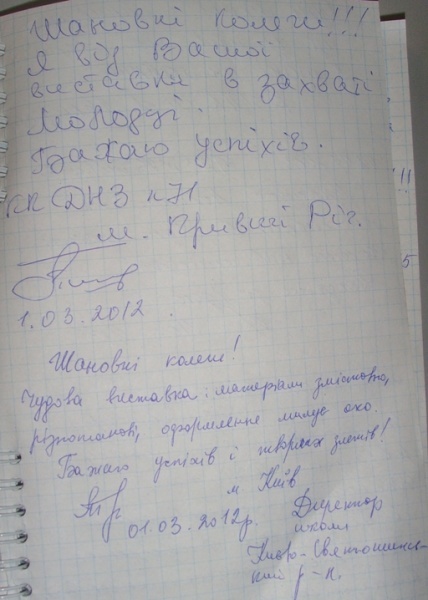 Шановні колеги!!!
Я від Вашої
виставки в захваті
Молодці.
Бажаю успіхів.
КК ДНЗ №71
м. Кривий Ріг.
1.03.2012.
Шановні колеги!
Чудова виставка: матеріали змістовні,
різнопланові, оформлення милує око.
Бажаю успіхів і творчих злетів!
м Київ
01.03.2012р.
Директор
школи
Києво-Святошинсь-
кий р-н.